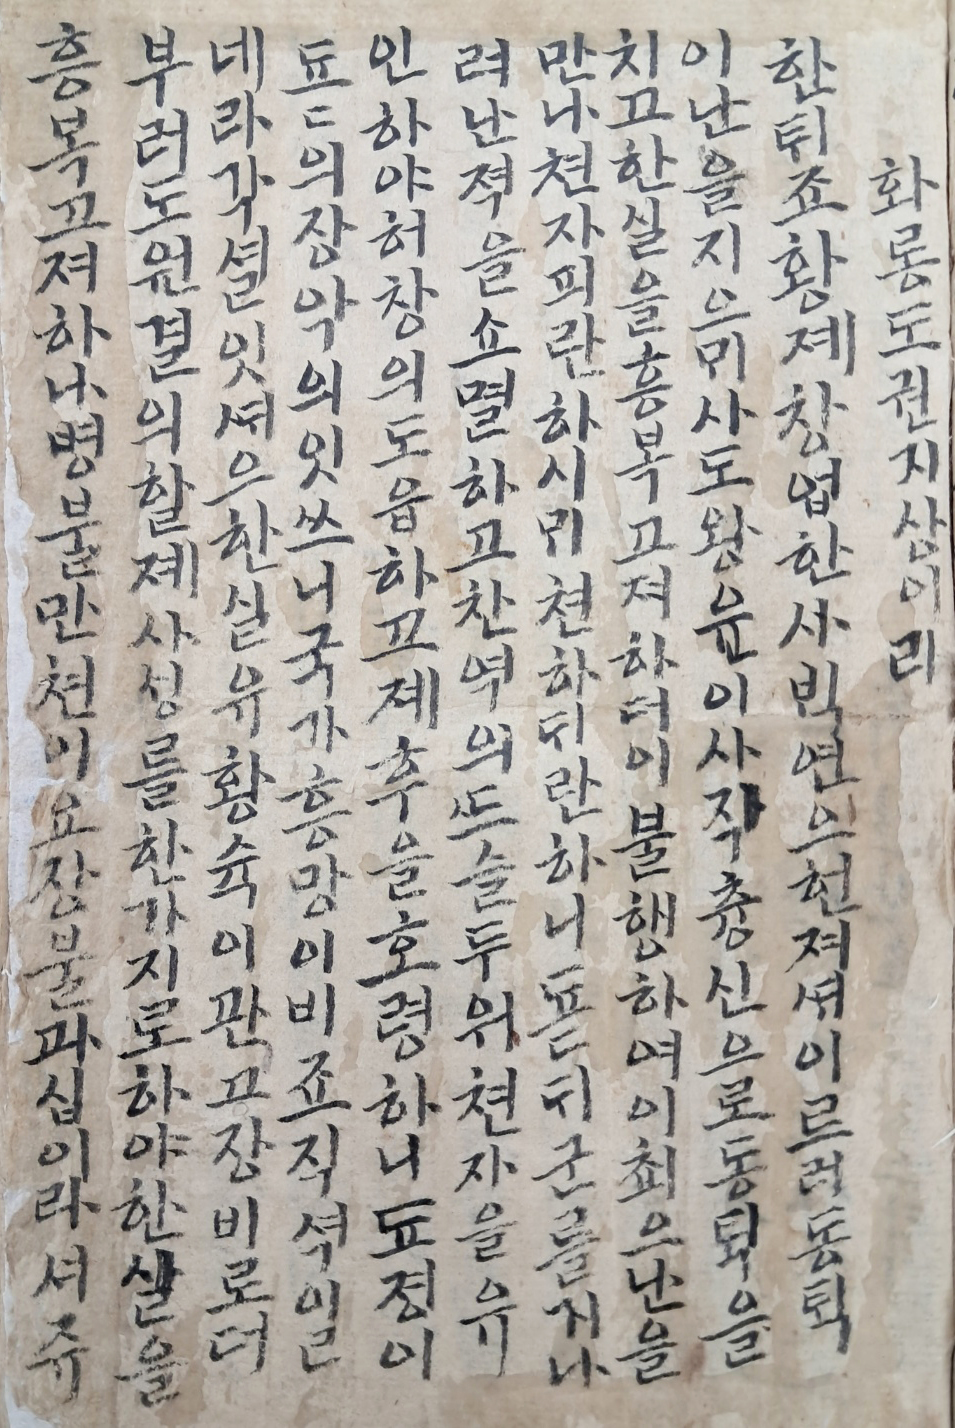 화룡도권지상이리
한튀죠황졔창업한사빅연으헌져셔이르러동퇵
이난을지으믜사도왕윤이사직츙신으로동퇵을
치고한실을흥복고져하더이불행하여이최으난을
만나쳔자피란하시믜쳔하디란하니죠튀군를거나
려난젹을쇼멸하고찬역의뜨슬두워쳔자을유
인하야허창의도읍하고졔후을호령하니됴졍이
됴ᄃ의장악의잇쓰니국가흥망이비죠직셕일
네라각셜잇셔으한실유황슉이관고장비로더
부러도원결의할졔사셩를한가지로하야한살을
흥복고져하나병불만쳔이요장불과십이라셔쥬